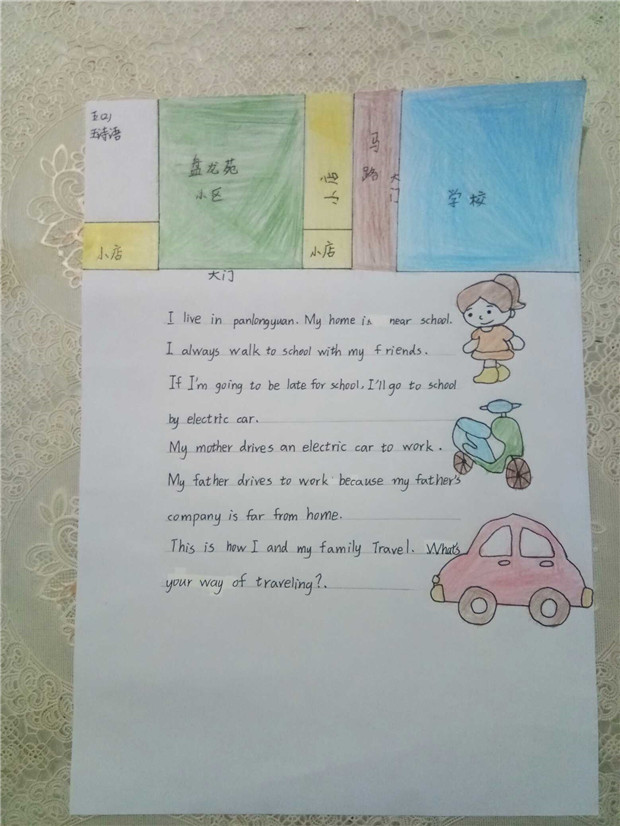 盘龙苑
小区
马
路
大
门
学校
小店
小店
大门
I live in panlongyuan. My home is near school.
I always walk to school with my friends.
If I'm going to be late for school, I'll go to school
by electric car.
My mother drives an electric car to work.
My father drives to work because my father's
company is far from home.
This is how I and my family Travel. What's
your way of traveling?.